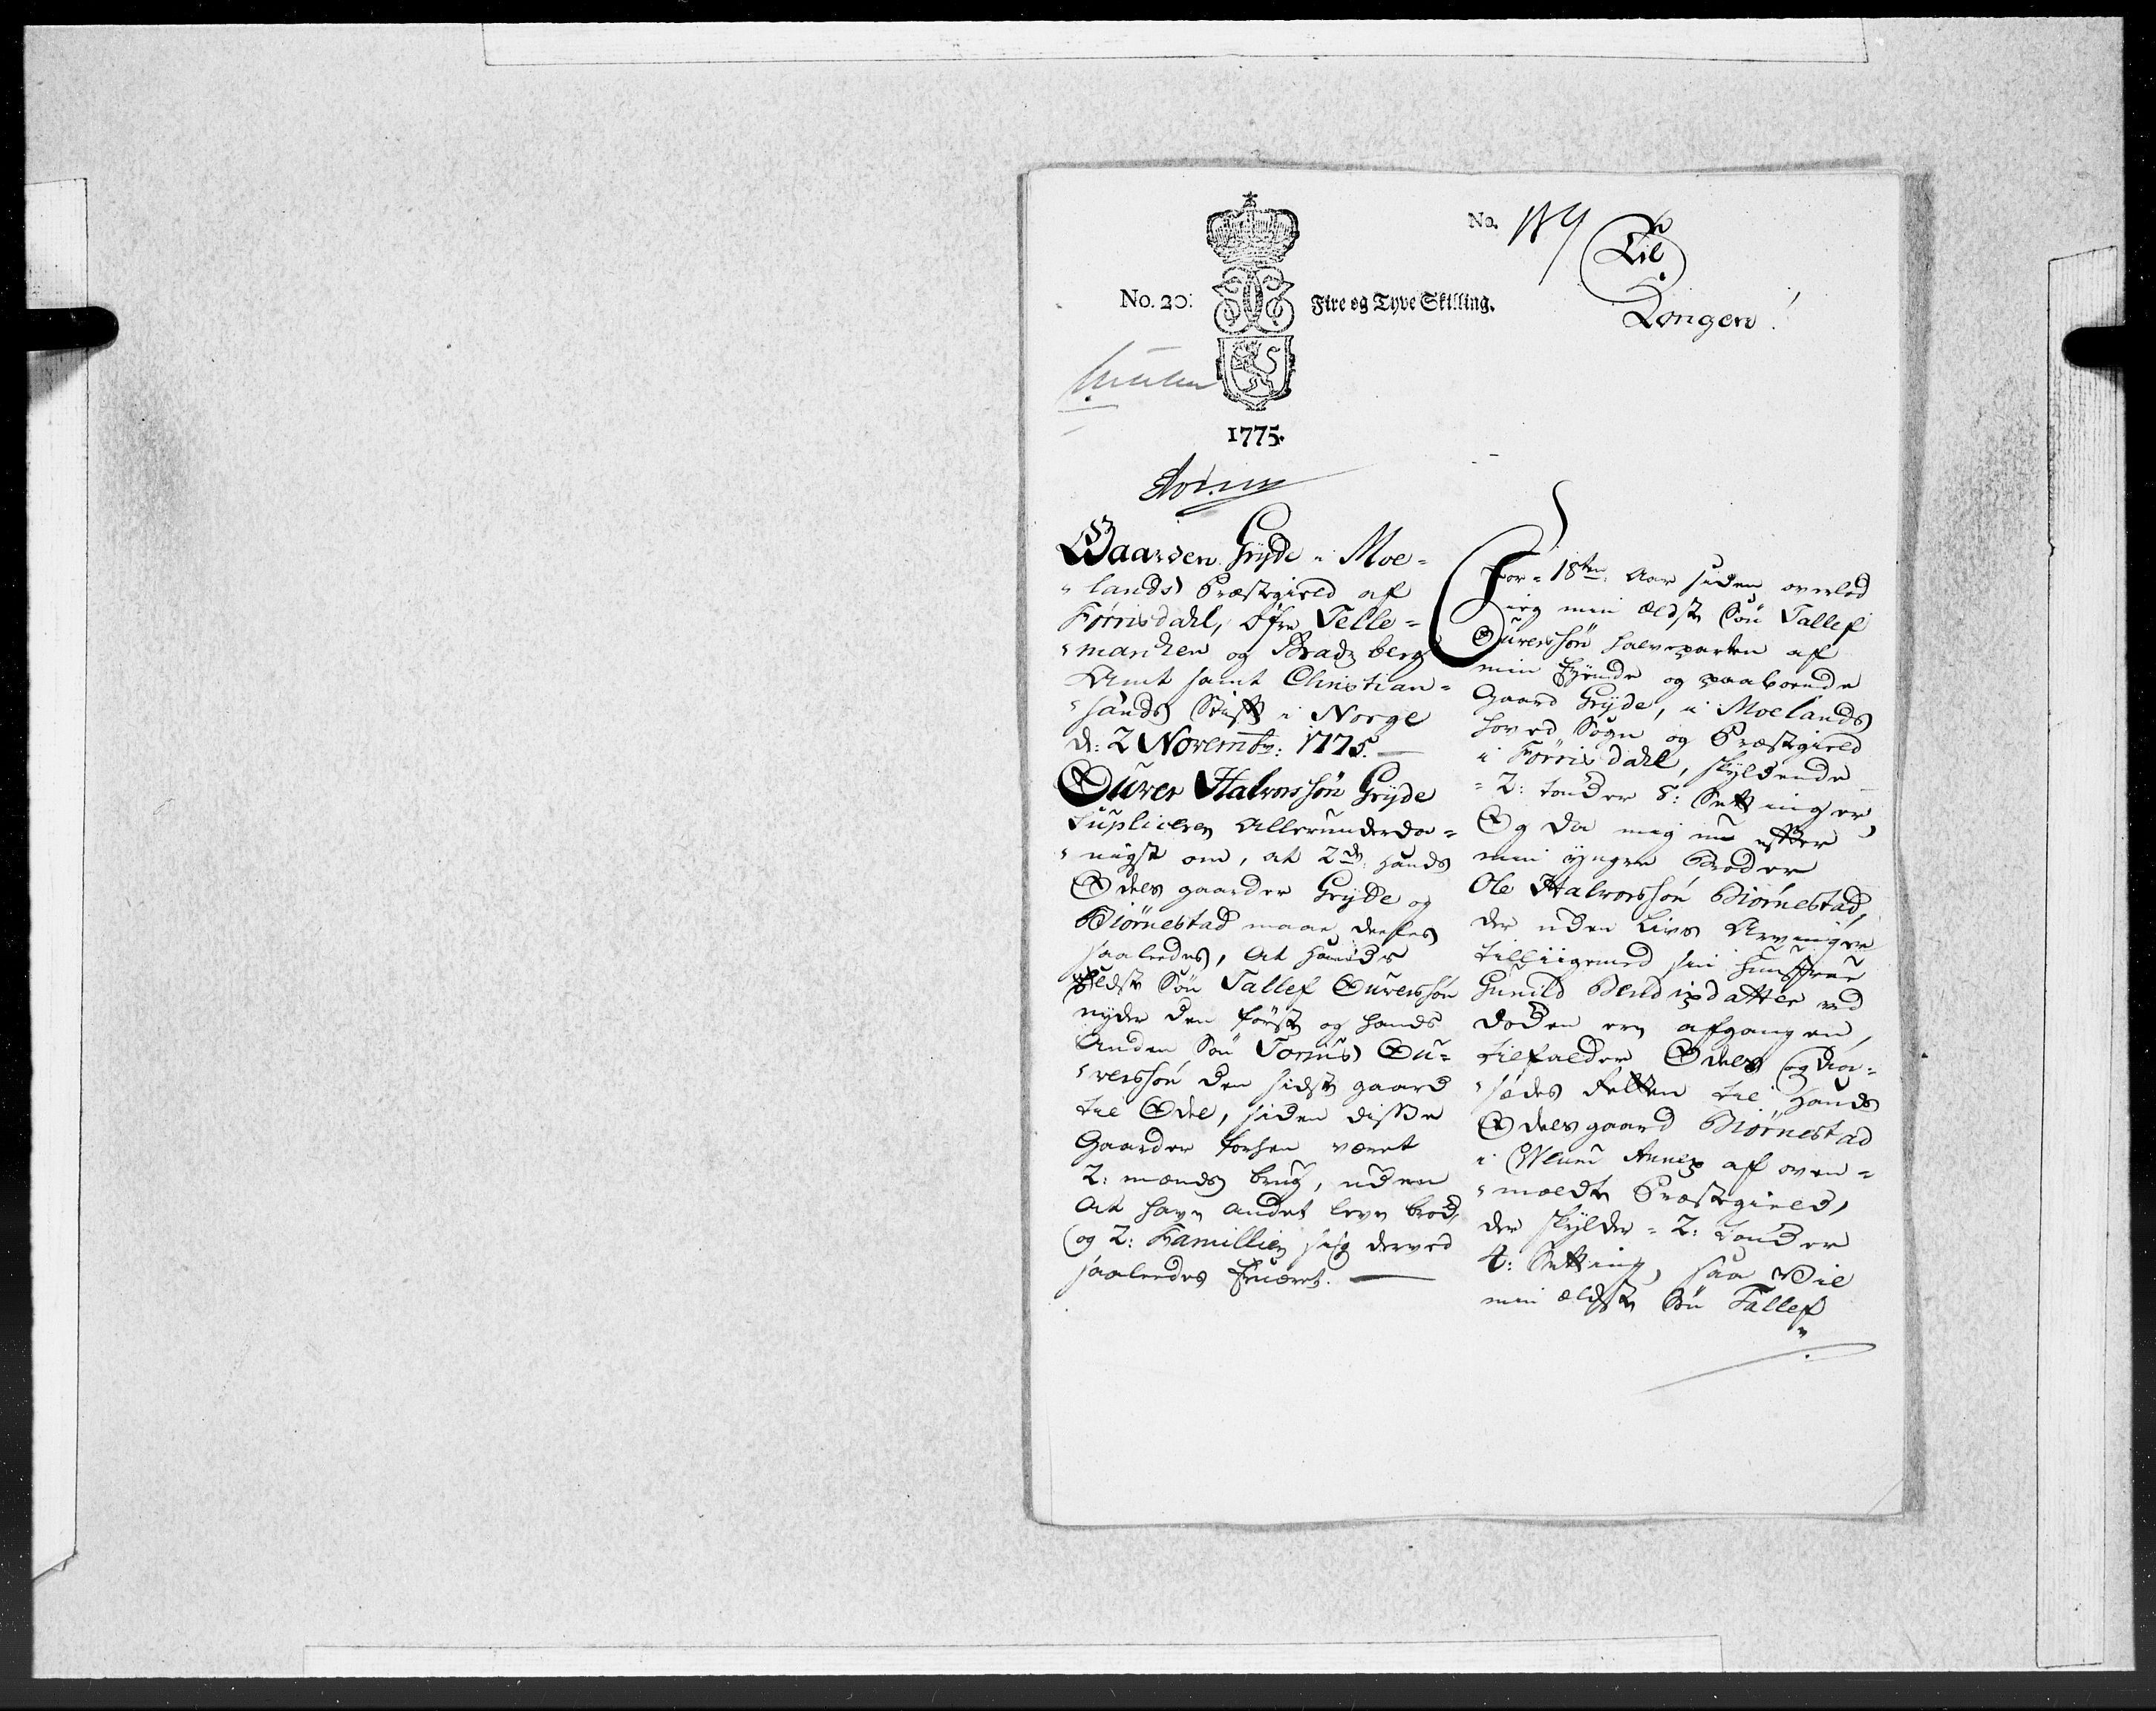 No. 189
Til
Kongen!
No. 20.
Fire og Tyve Skilling.
1775.
Gaarden Gryde i Moe=
lands Præstegield af
Førrisdahl, Øfre Telle=
marchen og Bradsberg
Amt samt Christian=
sands Stift i Norge
d: 2 Novembr: 1775.
Ouver Halvorssøn Gryde
Supliceren Allerunderda=
nigst om, at 2de hands
Odels gaarder Gryde og
Biørnestad maae deeles
saaledes, at hands
Eldste Søn Tallef Ouverssøn
nyder den første og hands
Anden Søn Torius Ou=
verssøn den sidste gaard
til Odel, siden disse
Gaarder forhen været
2: mands brug, uden
at have andet leve brød,
og 2: Famillier sig derved
saaledes
For 18ten Aar siden overlod
ieg min ældste Søn Tallef
Ouverssøn halveparten af
min Eyende og paaboende
Gaard Gryde, i Moelands
hoved Sogn og Præstegield
i Førrisdahl, skyldende
2: tønder 8: Setting er
Og da mig nu efter
min yngre Broder
Ole Halvorssøn Biørnestad,
der uden Livs Arvinger
tilliigemed sin hustrue
Gunild Bendixdatter ved
døden er afgangen,
tilfalder Odels og Aa=
sædes Retten til hands
Odelsgaard Biørnestad
i Annex af oven=
meldte Præstegield,
der skylder 2: tønder
4: Setting, saa vil
min ældste Søn Tallef